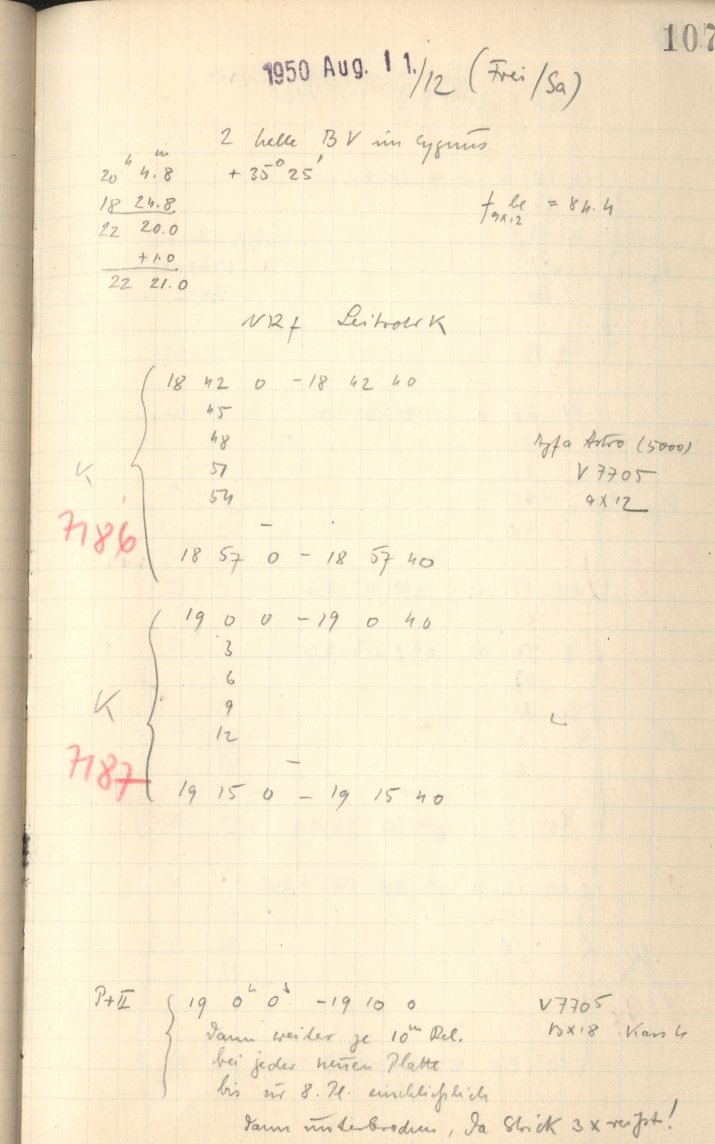 107
1950 Aug. 11./12 (Frei/Sa)
2 helle BV im Cygnus
20h 4.8m +35° 25'
18 24.8
22 20.0
+1.0
22 21.0
f 9x12 = 84.4
K
18 42 0 - 18 42 40
45
48
51
54
-
18 57 0 - 18 57 40
7186
Agfa Astro (5000)
V 7705
9x12
K
19 0 0 - 19 0 40
3
6
9
12
-
19 15 0 - 19 15 40
7187
P+II
19 0h 0s - 19 10 0
V7705
13x18 Kass 4
dann weiter je 10m Bel.
bei jeder neuen Platte
bis zur 8. Pl. einschließlich
dann unterbrochen, da Strick 3x reisst!